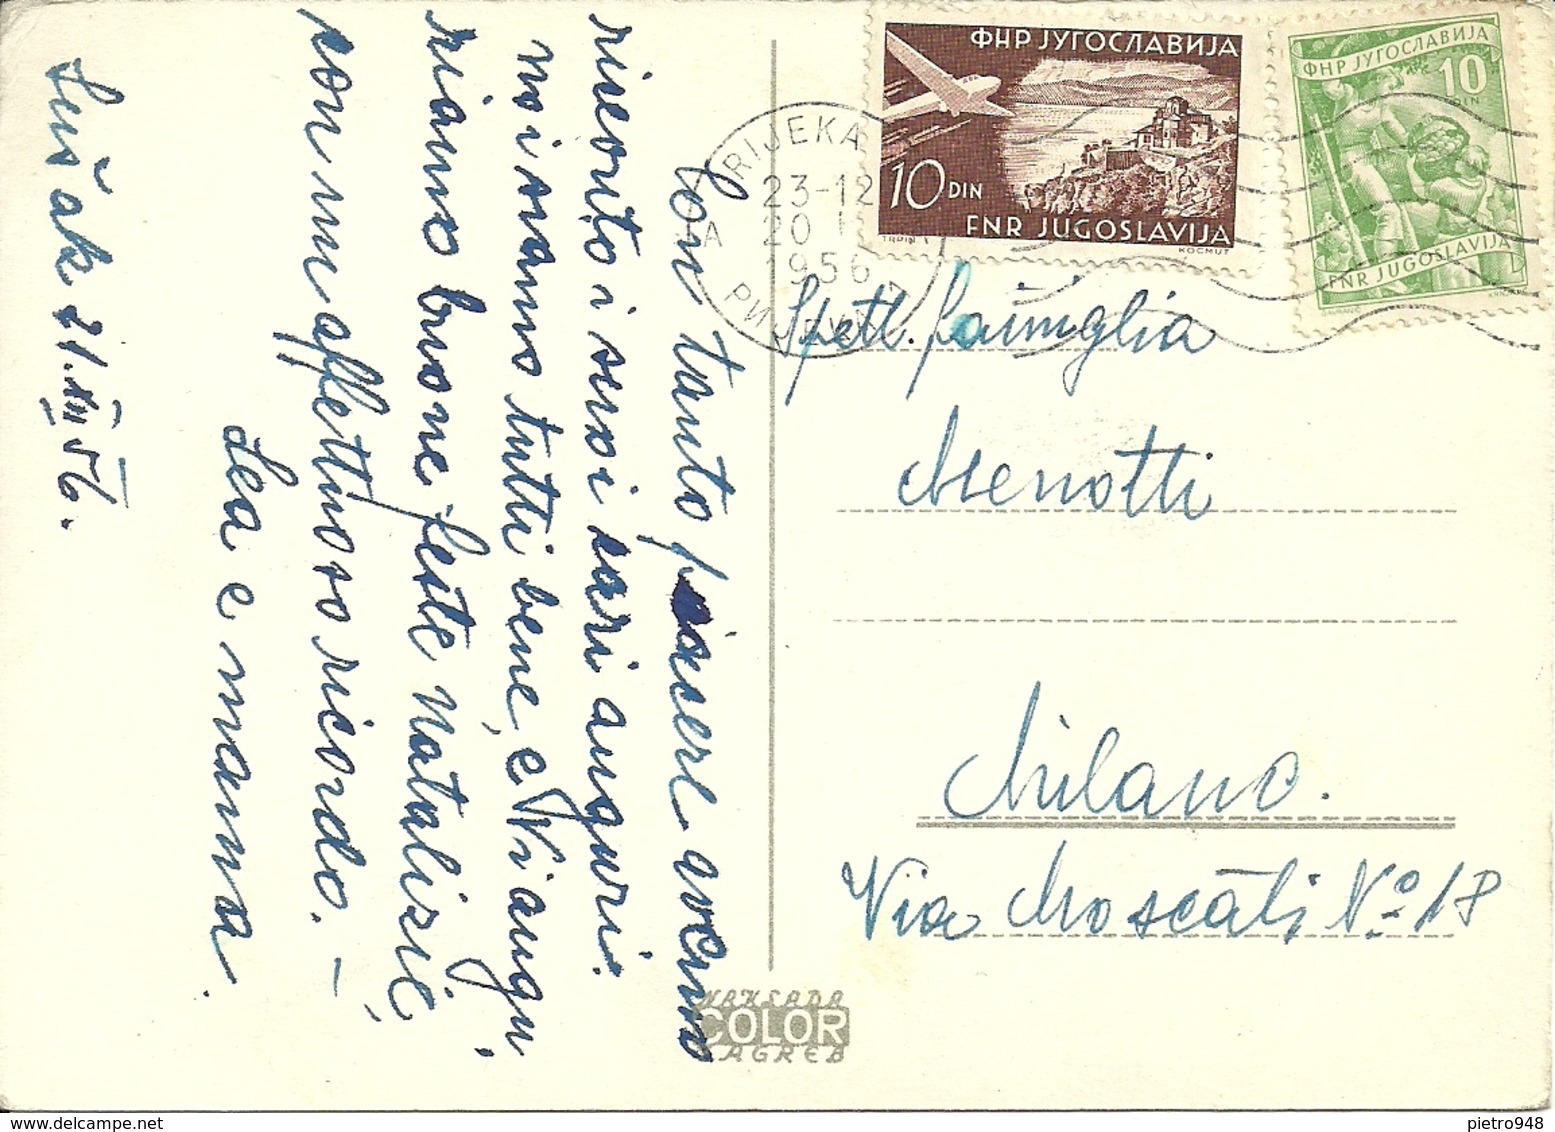 Sušak 21.XII 56.
Con tanto piacere avemo
ricevuto i suoi cari auguri.
noi siamo tutti bene, e Vi augu,
riamo buone feste natalizie,
con un affettuoso ricordo. –
Lea e mamma.
ФНР ЈУГОСЛАВИЈА
10 DIN
FNR JUGOSLAVIJA
TRPIN
KOCMUT
ФНР ЈУГОСЛАВИЈА
10
DIN
FNR JUGOSLAVIJA
RIJEKA
23-12
20
1956
РИЈЕКА 1
Spett. famiglia
Menotti
Milano.
Via Moscati No 18
NAKLADA
COLOR
ZAGREB
pietro948